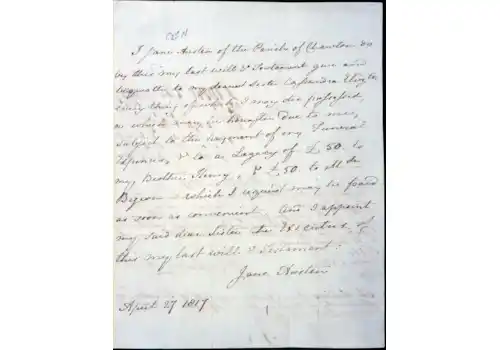 I Jane Austen of the Parish of Chawton do
by this my last Will & Testament give and
bequeath to my dearest Sister Cassandra Elizth
every thing of which I may die possessed,
or which may be hereafter due to me,
subject to the payment of my Funeral
Expences, & to a Legacy of £50. to
my Brother Henry, & £50. to Mde
Bigeon which I request may be paid
as soon as convenient. And I appoint
my said dear Sister the Executrix of
this my last Will & Testament.
Jane Austen
April 27 1817